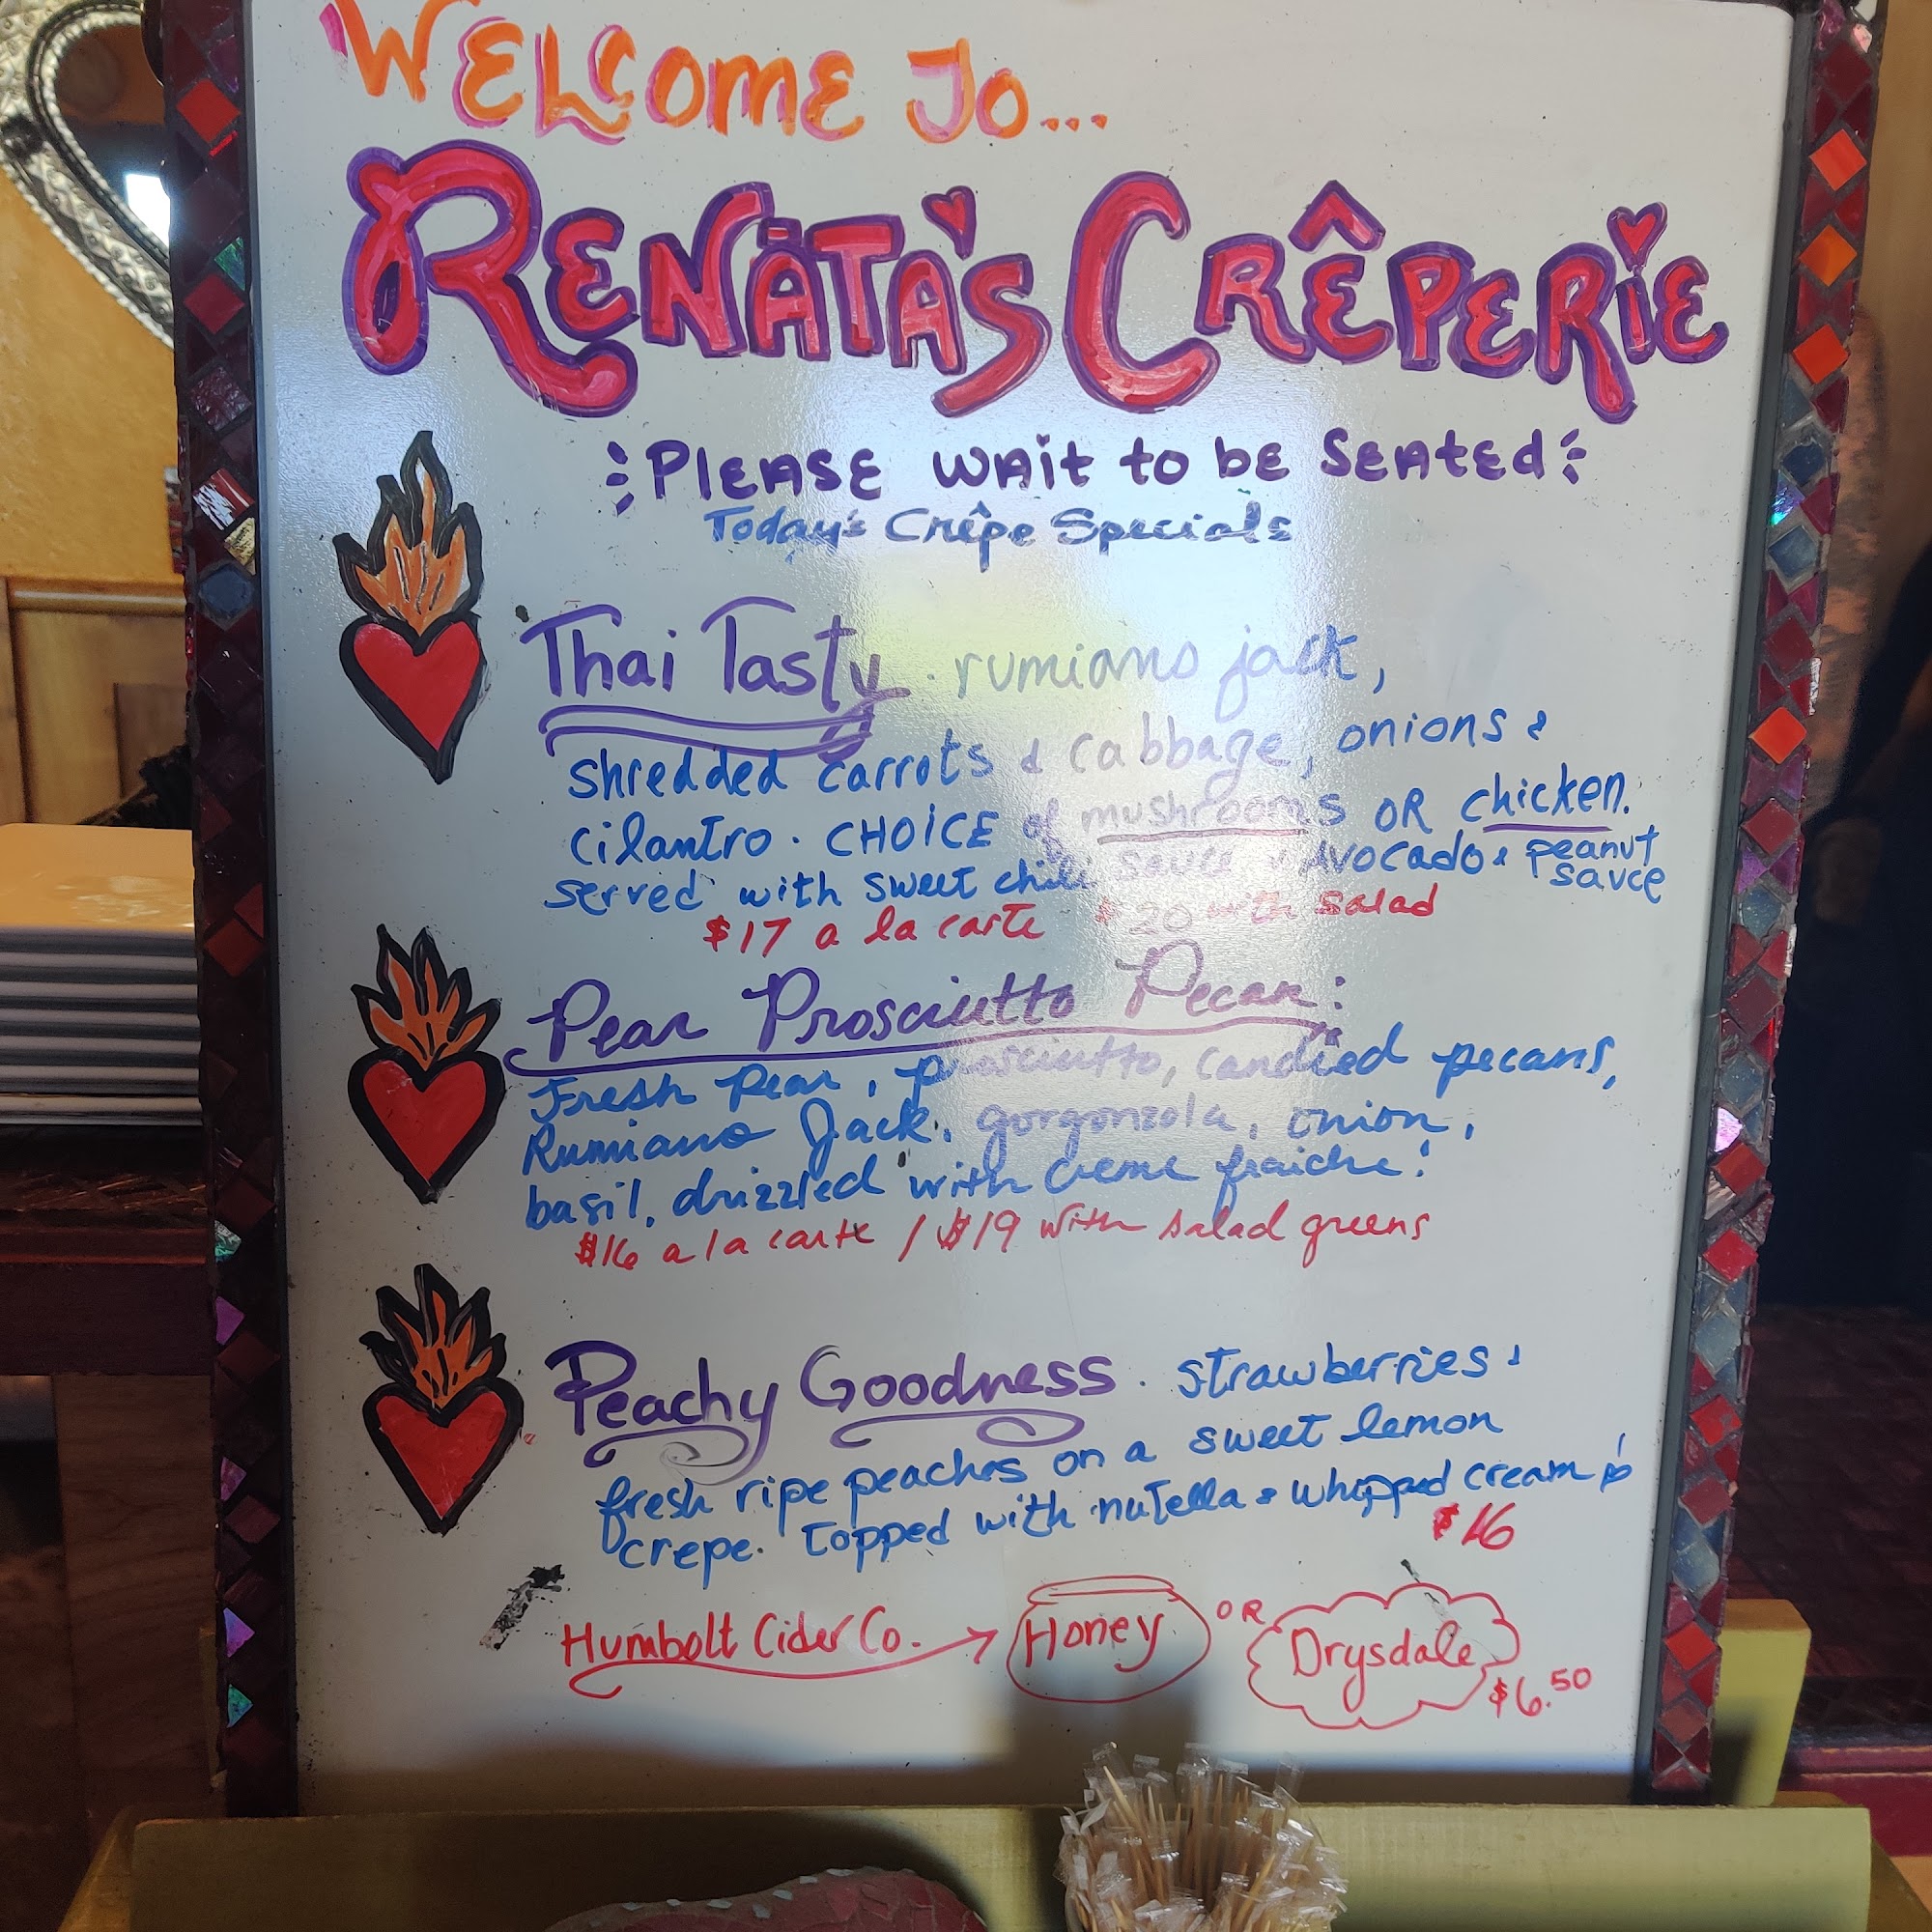 WELCOME TO...
RENATA'S CRÊPERIE
PLEASE WAIT TO BE SEATED
Today's Crêpe Specials
Thai Tasty. rumiano jack,
shredded carrots & cabbage, onions &
cilantro. CHOICE of mushrooms OR chicken.
served with sweet chili sauce, Avocado & peanut sauce
$17 a la carte $20 with salad
Pear Prosciutto Pecan:
Fresh Pear, prosciutto, candied pecans,
Rumiano Jack, gorgonzola, onion,
basil, drizzled with creme fraiche!
$16 a la carte / $19 with salad greens
Peachy Goodness. strawberries &
fresh ripe peaches on a sweet lemon
crepe. topped with nutella & whipped cream
$16
Humbolt Cider Co. → Honey OR Drysdale
$6.50